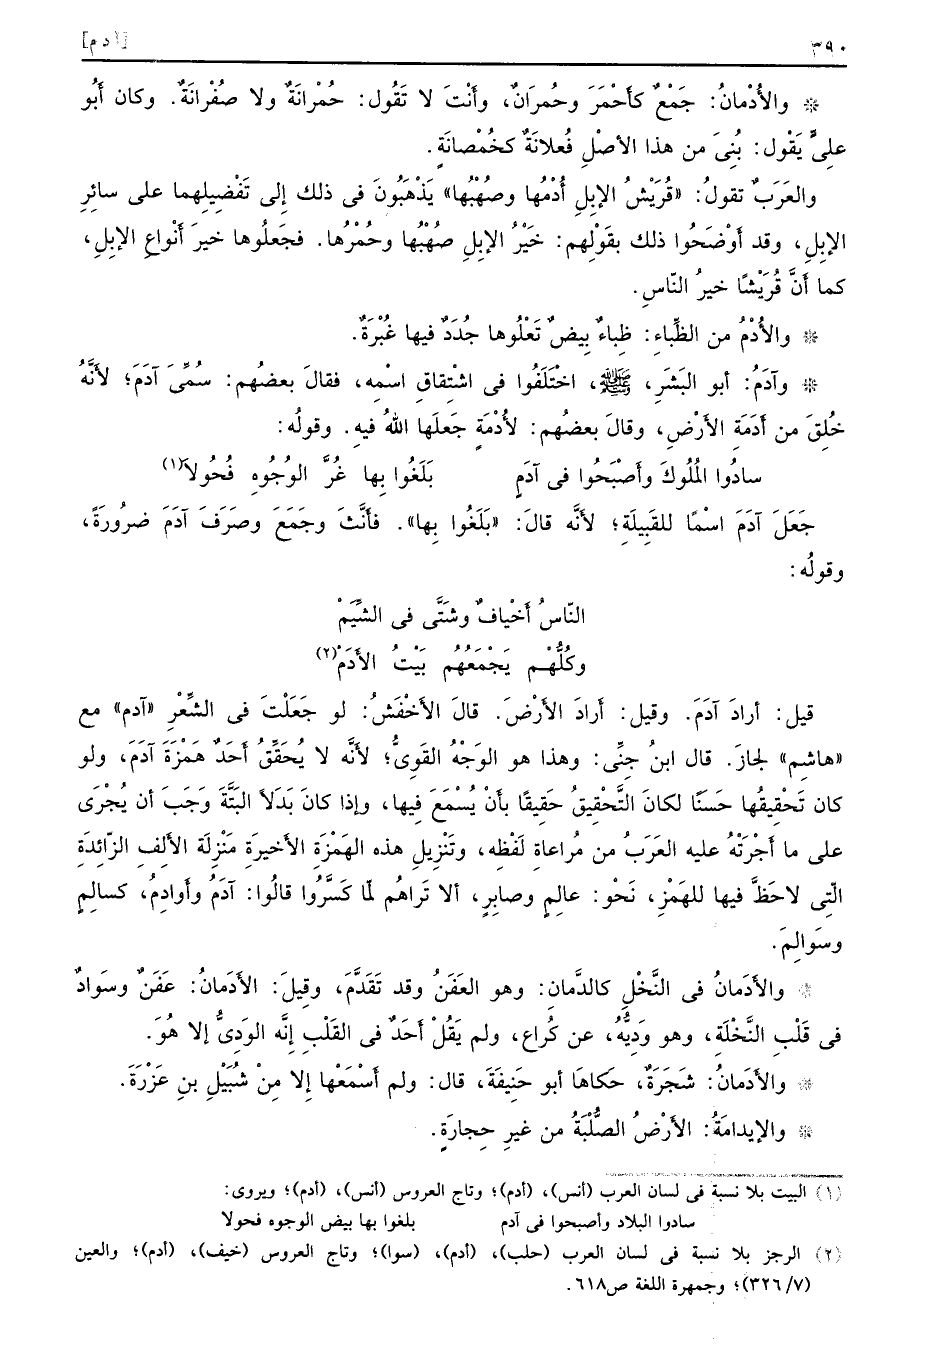 ٣٩٠
[أدم]
* والأُدْمانُ: جَمْعٌ كأَحْمَرَ وحُمرانٍ، وأنْتَ لا تَقُول: حُمْرانَةٌ ولا صُفْرانَةٌ. وكان أَبُو
علىٍّ يَقْول: بُنِىَ من هذا الأصْلِ فُعلانَةٌ كخُمْصانَةٍ.
والعَرَبُ تقولُ: «قُرَيْشُ الإبلِ أُدْمُها وصُهْبُها» يَذْهَبُونَ فى ذلك إلى تَفْضِيلِهما على سائِرِ
الإبلِ، وقد أوْضَحُوا ذلك بقَوْلِهم: خَيْرُ الإبلِ صُهْبُها وحُمْرُها. فجَعلُوها خيرَ أنْواعِ الإبِلِ،
كما أنَّ قُرَيْشًا خيرُ النّاسِ.
* والأُدْمُ من الظِّباءِ: ظِباءٌ بِيضٌ تَعْلُوها جُدَدٌ فيها غُبْرَةٌ.
* وآدَمُ: أبو البَشَرِ، ﷺ، اخْتَلَفُوا فى اشْتِقاقِ اسْمِه، فقالَ بعضُهم: سُمِّىَ آدَمَ؛ لأنَّهُ
خُلِقَ من أدَمَةِ الأرْضِ، وقالَ بعضُهم: لأُدْمَةٍ جَعلَها اللهُ فيهِ. وقولُه:
سادُوا المُلُوكَ وأصْبَحُوا فى آدَمٍ بَلَغُوا بِها غُرَّ الوُجُوهِ فُحُولاَ(١)
جَعَلَ آدَمَ اسْمًا للقَبِيلَةِ؛ لأنَّه قالَ: «بَلَغُوا بِها». فأنَّثَ وجَمَعَ وصَرَفَ آدَمَ ضرُورَةً،
وقولُه:
النّاسُ أخْيافٌ وشَتَّى فى الشِّيَمْ
وكُلُّهُم يَجْمَعُهُم بَيْتُ الأَدَمْ(٢)
قيل: أرادَ آدَمَ. وقيل: أرادَ الأرْضَ. قالَ الأخْفَشُ: لو جَعَلْتَ فى الشِّعْرِ «آدم» مع
«هاشِم» لجازَ. قال ابنُ جِنِّى: وهذا هو الوَجْهُ القَوِىُّ؛ لأنَّه لا يُحَقِّقُ أحَدٌ هَمْزَةَ آدَمَ، ولو
كان تَحْقِيقُها حَسَنًا لكانَ التَّحْقِيقُ حَقِيقًا بأنْ يُسْمَعَ فيها، وإذا كانَ بَدَلاً البَتَّةَ وَجَبَ أن يُجْرَى
على ما أجْرَتْهُ عليه العَرَبُ من مُراعاةِ لَفْظِه، وتَنْزِيلِ هذه الهَمْزَةِ الأخيرَةِ مَنْزِلَة الألِفِ الزّائِدَةِ
الَّتِى لاحَظَّ فيها للهَمْزِ، نَحْوَ: عالِمٍ وصابِرٍ، ألا تَراهُم لمّا كَسَّرُوا قالُوا: آدَمُ وأوادِمُ، كسالِمٍ
وسَوالِمَ.
* والأدَمانُ فى النَّخْلِ كالدَّمانِ: وهو العَفَنُ وقد تَقَدَّمَ، وقيلَ: الأدَمانُ: عَفَنٌ وسَوادٌ
فى قَلْبِ النَّخْلَةِ، وهو وَدِيُّهُ، عن كُراع، ولم يَقُلْ أحَدٌ فى القَلْبِ إنَّه الوَدِىُّ إلا هُوَ.
* والأدَمانُ: شَجَرَةٌ، حَكاهَا أبو حَنِيفَةَ، قال: ولم أسْمَعْها إلا مِنْ شُبَيْلِ بنِ عَزْرَةَ.
* والإيدامَةُ: الأرْضُ الصُّلْبَةُ من غيرِ حِجارَةٍ.
(١) البيت بلا نسبة فى لسان العرب (أنس)، (أدم)؛ وتاج العروس (أنس)، (أدم)؛ ويروى:
سادوا البلاد وأصبحوا فى آدم بلغوا بها بيض الوجوه فحولا
(٢) الرجز بلا نسبة فى لسان العرب (حلب)، (أدم)، (سوا)؛ وتاج العروس (خيف)، (أدم)؛ والعين
(٣٢٦/٧)؛ وجمهرة اللغة ص٦١٨.